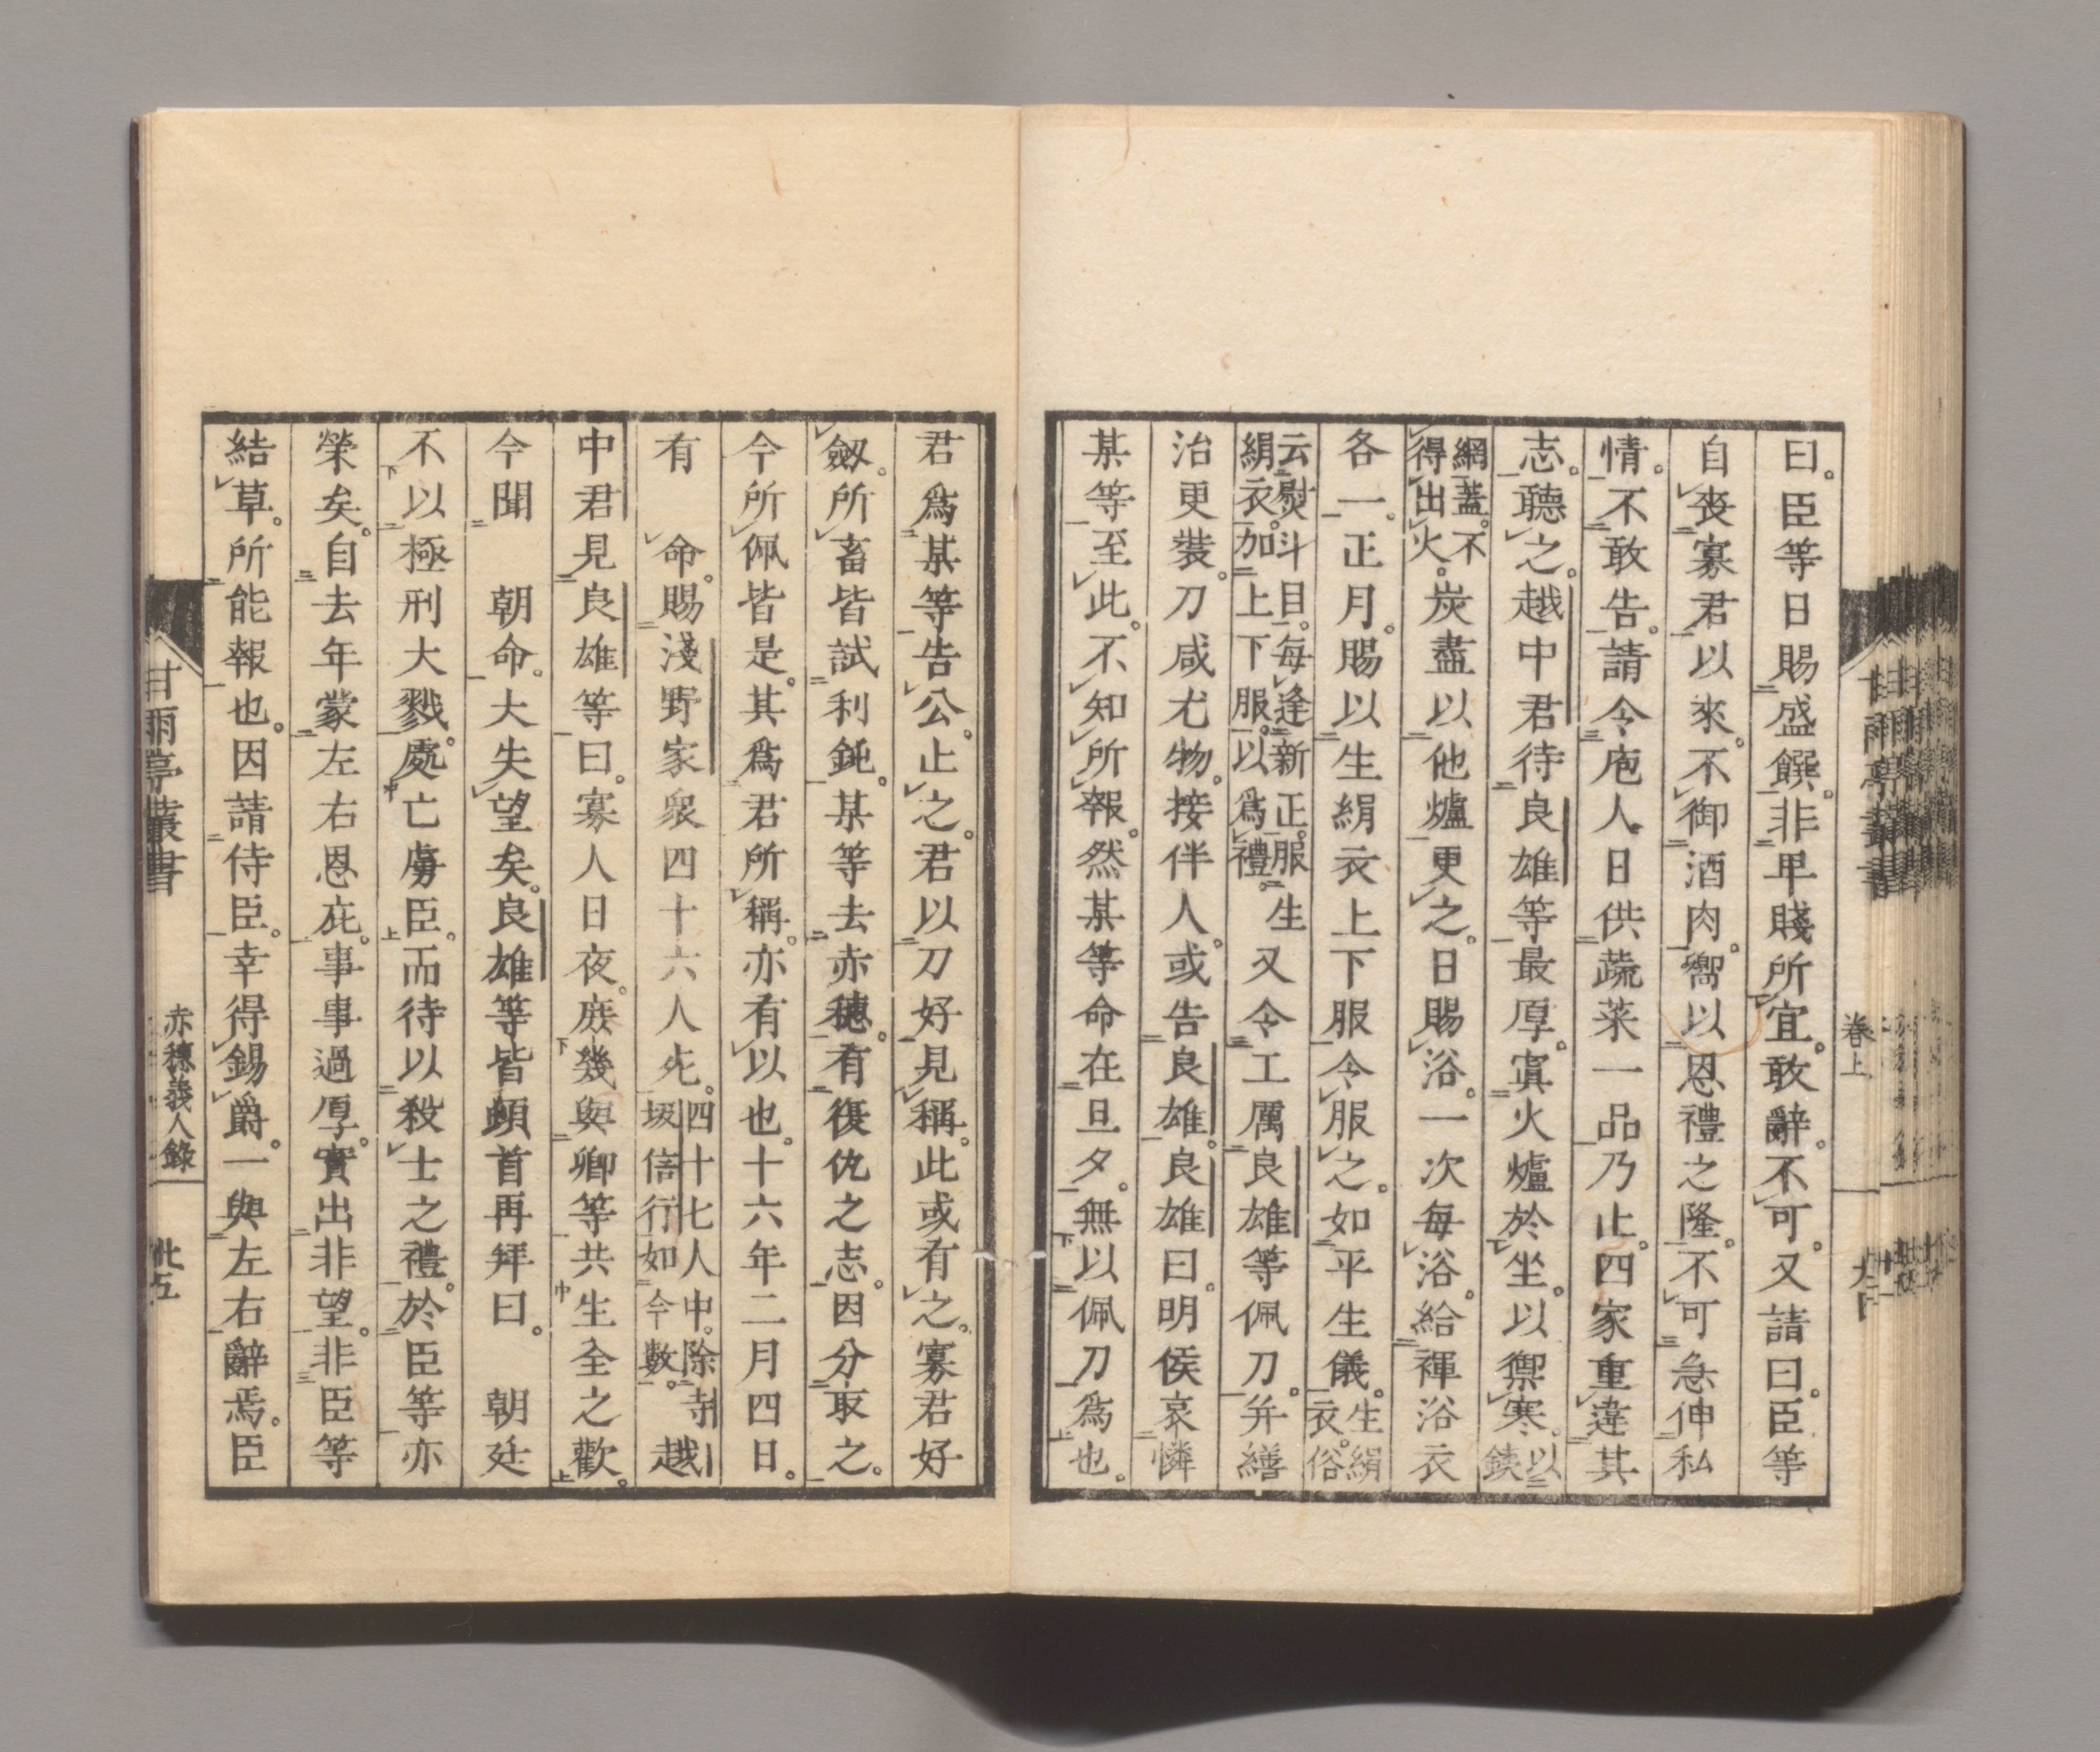 曰。臣等日賜盛饌。非卑賤所宜。敢辭。不可。又請曰。臣等
自喪寡君以來。不御酒肉。嚮以恩禮之隆。不可急伸私
情。不敢告。請令庖人日供蔬菜一品乃止。四家重違其
志。聽之。越中君待良雄等最厚。寘火爐於坐。以禦寒。以鐵
網蓋。不得出火。炭盡以他爐更之。日賜浴。一次每浴。給褌浴衣
各一。正月。賜以生絹衣上下服令服之。如平生儀。生絹衣。俗
云熨斗目。每逢新正。服生絹衣。加上下服。以爲禮。又令工厲良雄等佩刀。幷繕
治更裝。刀咸尤物。接伴人。或告良雄。良雄曰。明侯哀憐
某等至此。不知所報。然某等命在旦夕。無以佩刀爲也。
君爲某等告公。止之。君以刀好見稱。此或有之。寡君好
劔。所畜皆試利鈍。某等去赤穗。有復仇之志。因分取之。
今所佩皆是。其爲君所稱。亦有以也。十六年二月四日。
有　命。賜淺野家衆四十六人死。四十七人中。除寺坂信行如今數。越
中君見良雄等曰。寡人日夜。庶幾與卿等共生全之歡。
今聞　朝命。大失望矣。良雄等皆頓首再拜曰。　朝廷
不以極刑大戮。處亡虜臣。而待以殺士之禮。於臣等亦
榮矣。自去年蒙左右恩庇。事事過厚。實出非望。非臣等
結草。所能報也。因請侍臣。幸得錫爵。一與左右辭焉。臣
甘雨亭叢書　赤穗義人錄　廿五
甘雨亭叢書　卷上